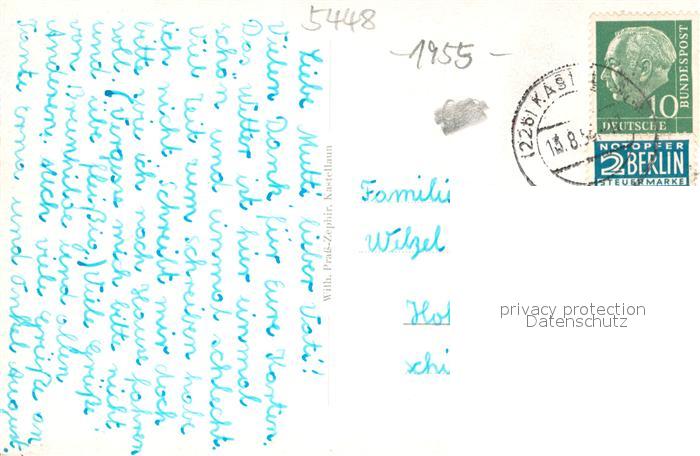 5448
-1955-
Liebe Mutti lieber Vati!!
Vielen Dank für Eure Karten.
Das Wetter ist hir einmal
schön und einmal schlecht.
Viel Zeit zum schreiben habe
ich nicht. Schreibt mir doch
bitte wie ich nach Hause fahren
soll. (Vergess mich bitte nicht
und übe fleißig.) Viele Grüße
von Dreimilibe und allen
Anderen. Auch viele Grüße an
Tante Erna und Onkel August.
With. Praß-Zephir, Kastellaun
Famili
Welzel
Hol
schi
(22b) KAST
13.8.5
10
DEUTSCHE
BUNDESPOST
NOTOPFER
2 BERLIN
STEUERMARKE
privacy protection
Datenschutz